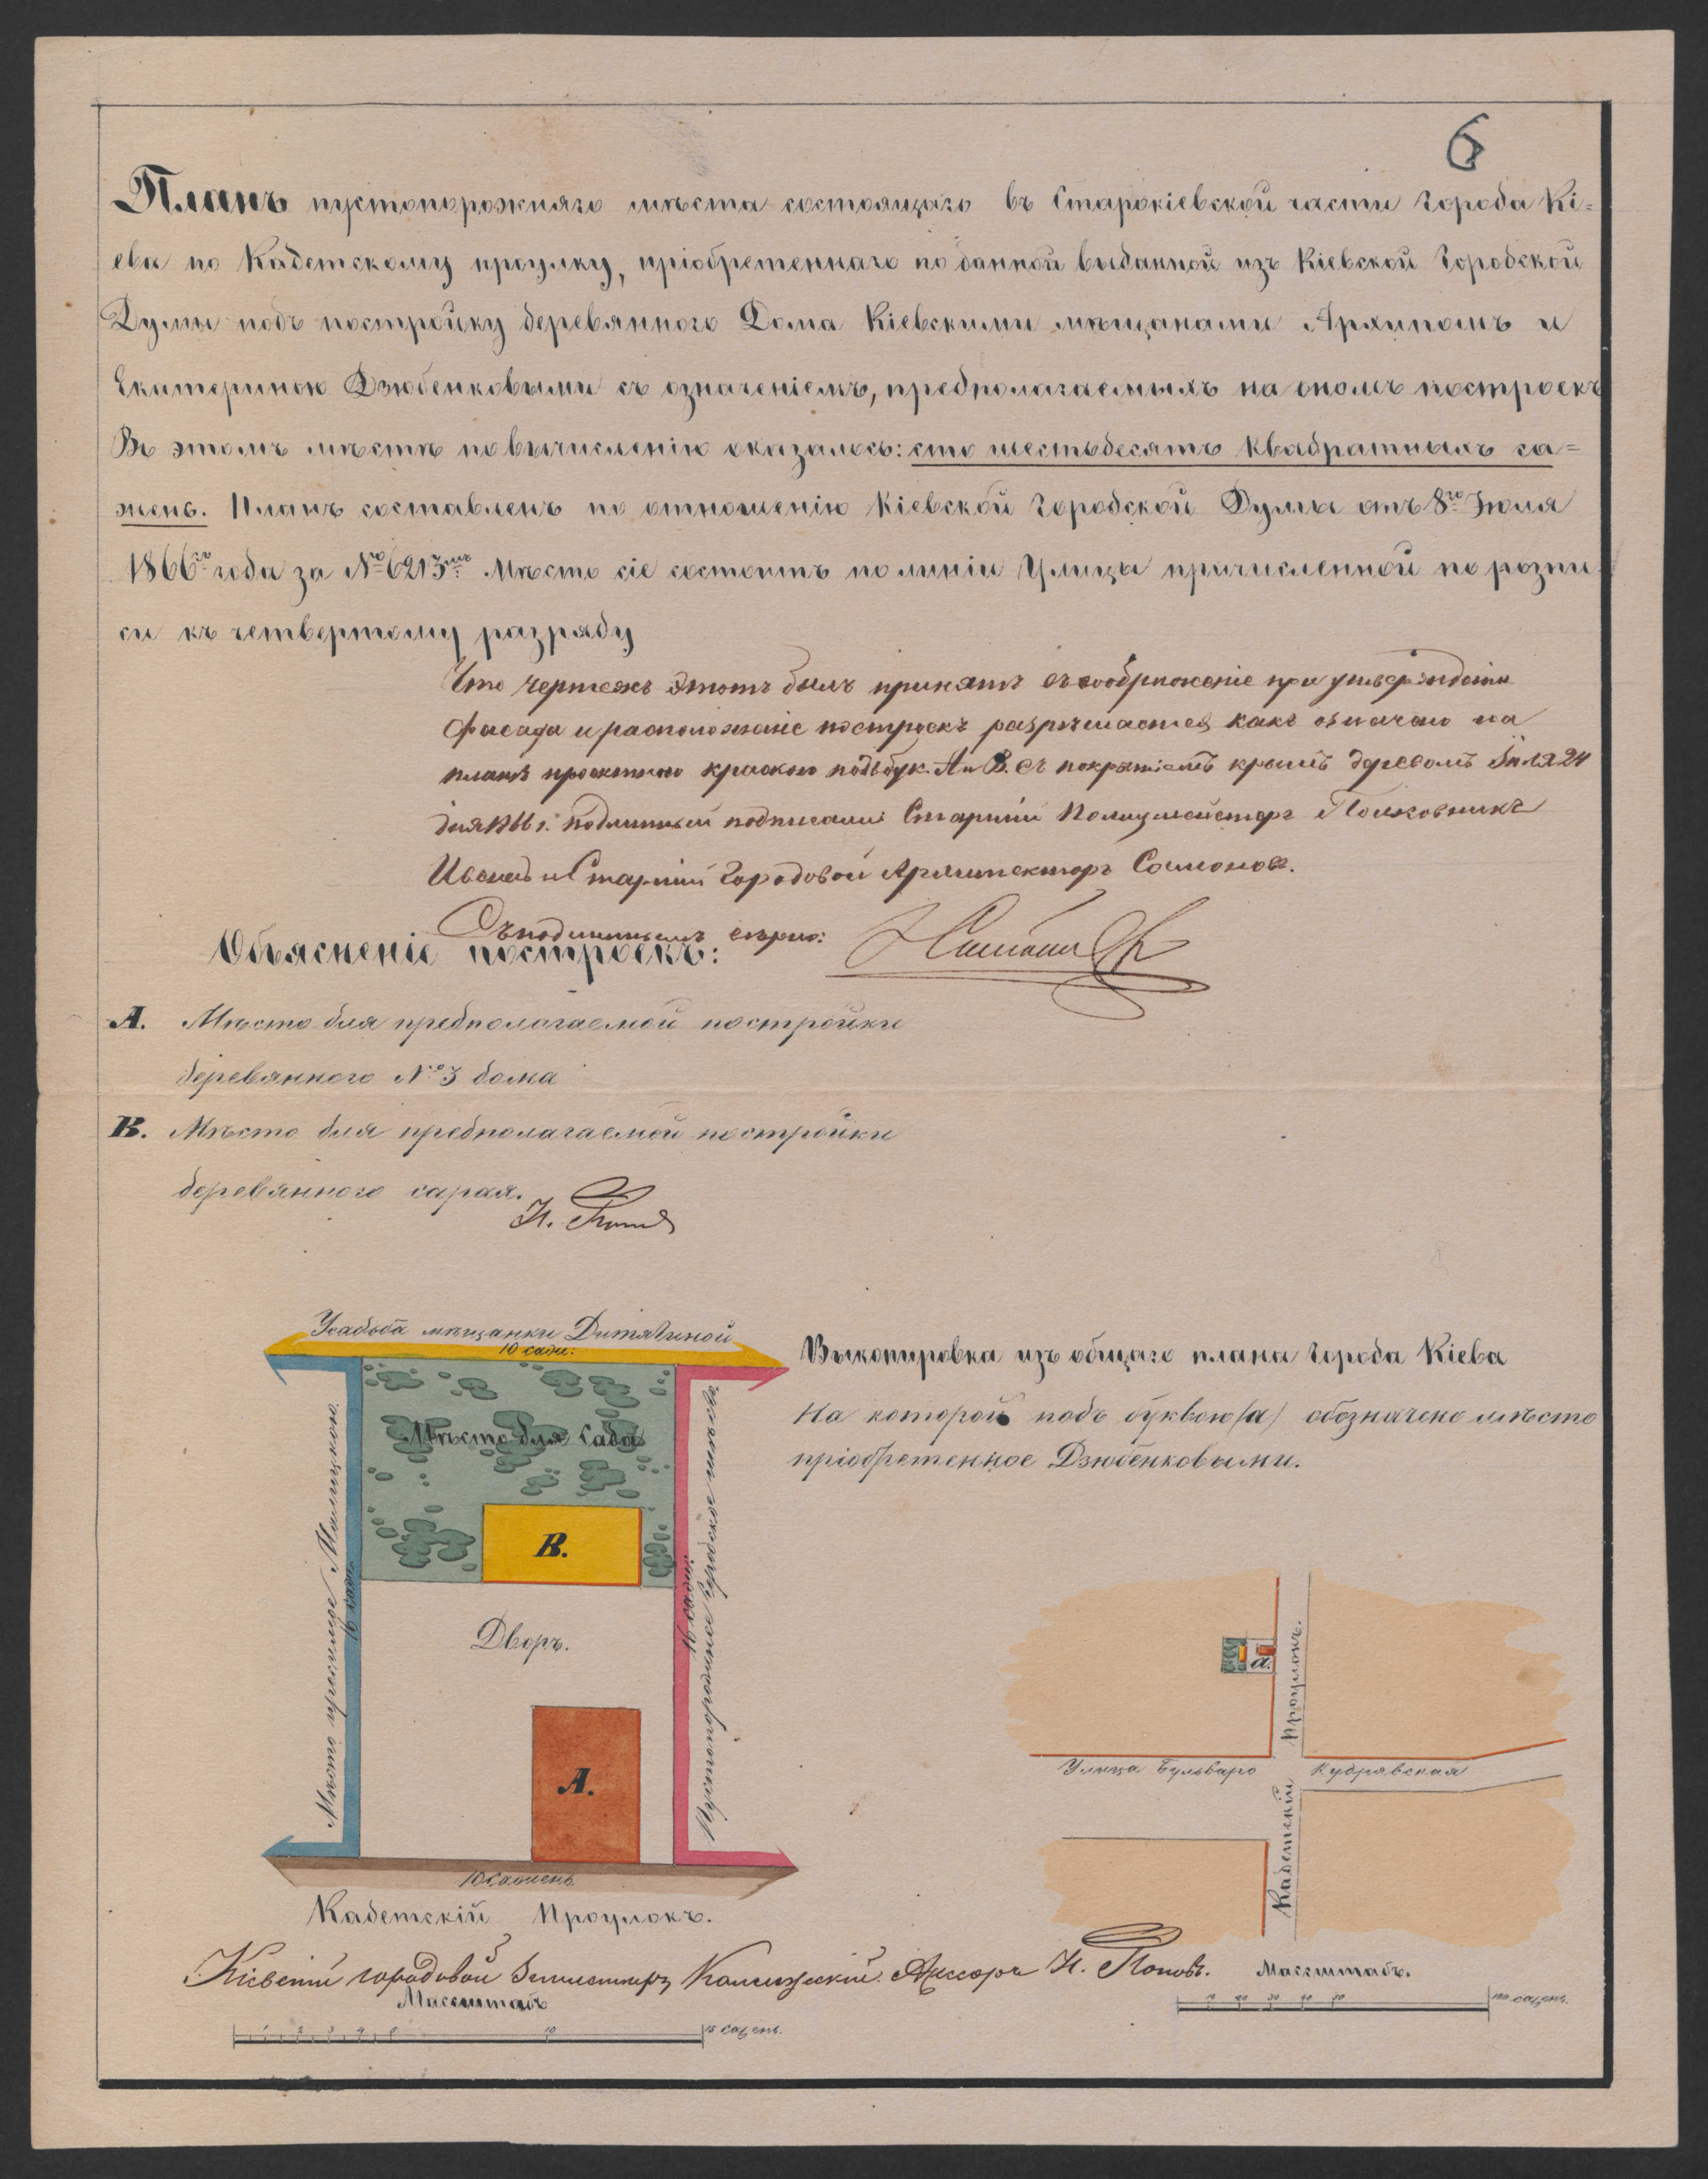 6
Планъ пустопорожняго мѣста состоящаго въ Старокіевской части Города Кі=
ева по Кадетскому проулку, пріобретеннаго по данной выданной изъ Кіевской Городской
Думы подъ постройку деревянного Дома Кіевскими мѣщанами Архипомъ и
Екатериною Дзюбенковыми съ означеніемъ, предполагаемыхъ на ономъ построекъ
Въ этомъ мѣстѣ по вычисленію оказалось: сто шестьдесятъ квадратныхъ са=
жень. Планъ составленъ по отношенію Кіевской Городской Думы отъ 8го Іюля
1866го года за № 6213мъ Мѣсто сіе состоитъ по линіи Улицы причисленной по розпи
си къ четвертому разряду
Что чертежъ этотъ былъ принятъ въ соображеніе при утвержденіи
фасада и расположеніе построекъ разрѣшается какъ означено на
планѣ проэктною краскою подъ бук. А и В. съ покрытіемъ крышъ деревомъ Іюля 24
дня 1866 г. подлинный подписали: Старшій Полицмейстеръ Полковникъ
Старшій Городовой Архитекторъ
Съ подлиннымъ вѣрно:
Объясненіе построекъ:
А. Мѣсто для предполагаемой постройки
деревянного № 3 дома
В. Мѣсто для предполагаемой постройки
деревянного сарая.
Н. Поповъ
Усадьба мѣщанки Дитятиной
10 саж:
Мѣсто для Сада
В.
Дворъ.
А.
16 саж:
16 саж:
10 сажень
Кадетскій Проулокъ.
Выкопировка изъ общаго плана Города Кіева
На которой подъ буквою (а) обозначено мѣсто
пріобретенное Дзюбенковыми.
а.
Проулокъ.
Улица Бульваро Кудрявская
Кадетскій
Кіевскій городовой Землемѣръ Колежскій Ассесоръ Н. Поповъ.
Масштабъ
1 2 3 4 5 10 15 сажень.
Масштабъ.
10 20 30 40 50 100 сажень.